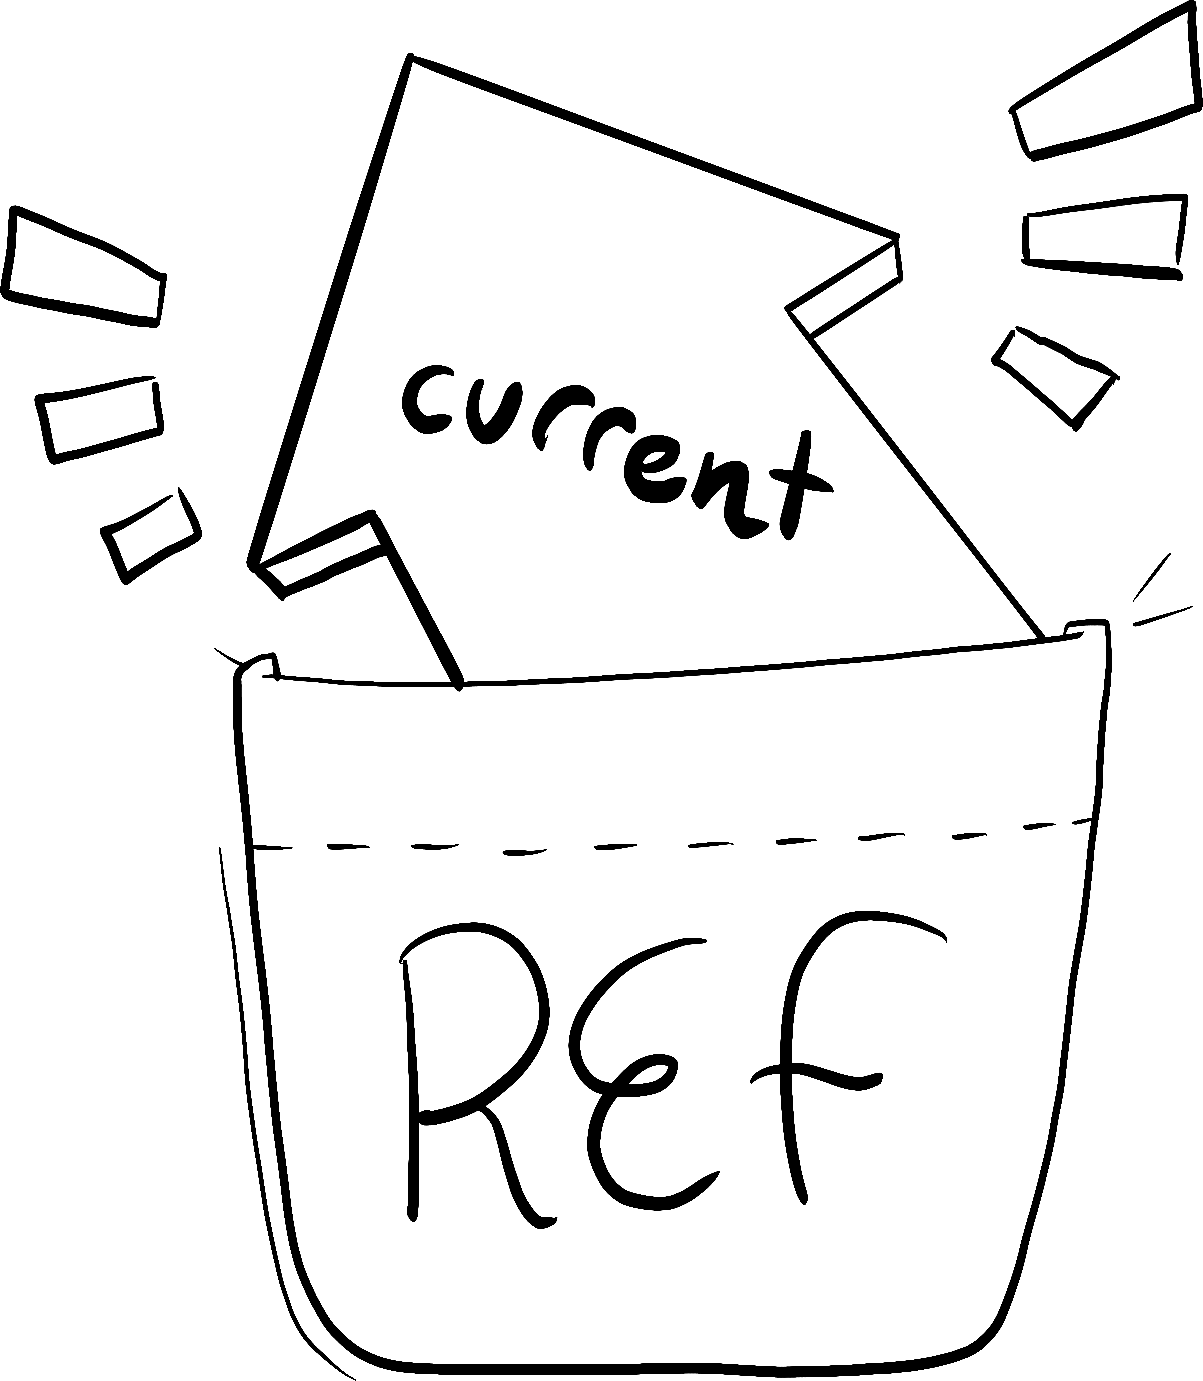 current
REF